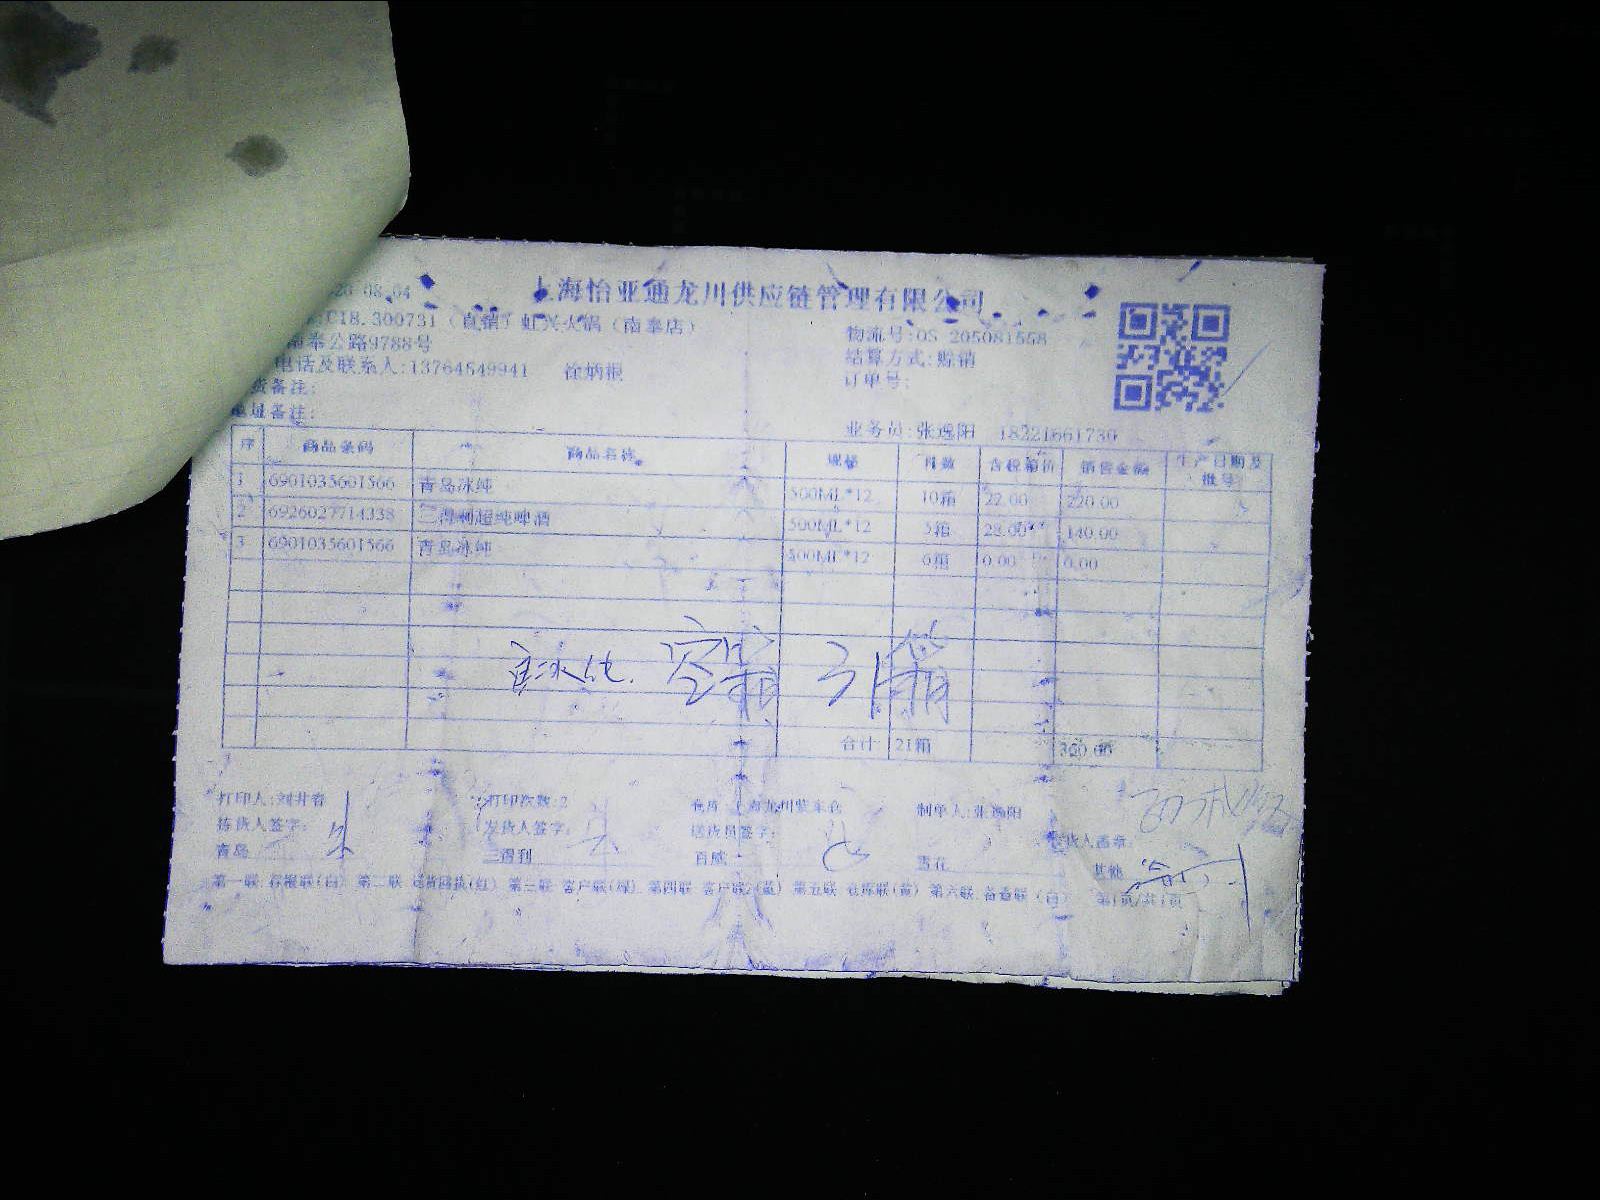 08.04
上海怡亚通龙川供应链管理有限公司
C18.300731（直销）虹兴火锅（南奉店）
物流号:OS 205081558
南奉公路9788号
结算方式:赊销
电话及联系人:13764549941 徐炳根
订单号:
货备注:
地址备注:
业务员:张逸阳 18221661730
序 商品条码 商品名称 规格 件数 含税箱价 销售金额 生产日期及批号
1 6901035601566 青岛冰纯 500ML*12 10箱 22.00 220.00
2 6926027714338 三得利超纯啤酒 500ML*12 5箱 28.00 140.00
3 6901035601566 青岛冰纯 500ML*12 6箱 0.00 0.00
冰纯 空箱 31箱
合计 21箱 360.00
打印人:刘井香 打印次数:2 仓库: 制单人:张逸阳
拣货人签字: 发货人签字: 送货员签字: 货人签章:
青岛 三得利 百威 雪花 其他
第一联 存根联(白) 第二联 送货回执(红) 第三联 客户联(绿) 第四联 客户联2(蓝) 第五联 仓库联(黄) 第六联 备查联(白) 第1页/共1页